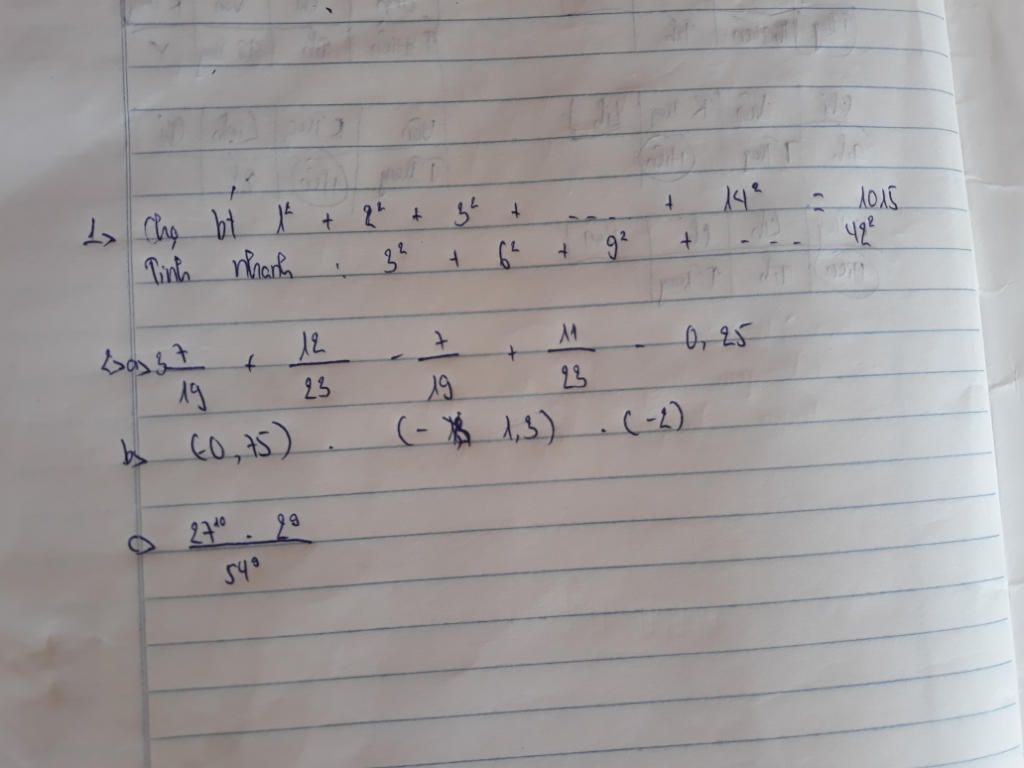 1> Cho bt 1² + 2² + 3² + ---- + 14² = 1015
Tính nhanh : 3² + 6² + 9² + ---- 42²
2> a> 3 7/19 + 12/23 - 7/19 + 11/23 - 0,25
b> (-0,75) . (- 1,3) . (-2)
c> 27¹⁰ . 2⁹ / 54⁹